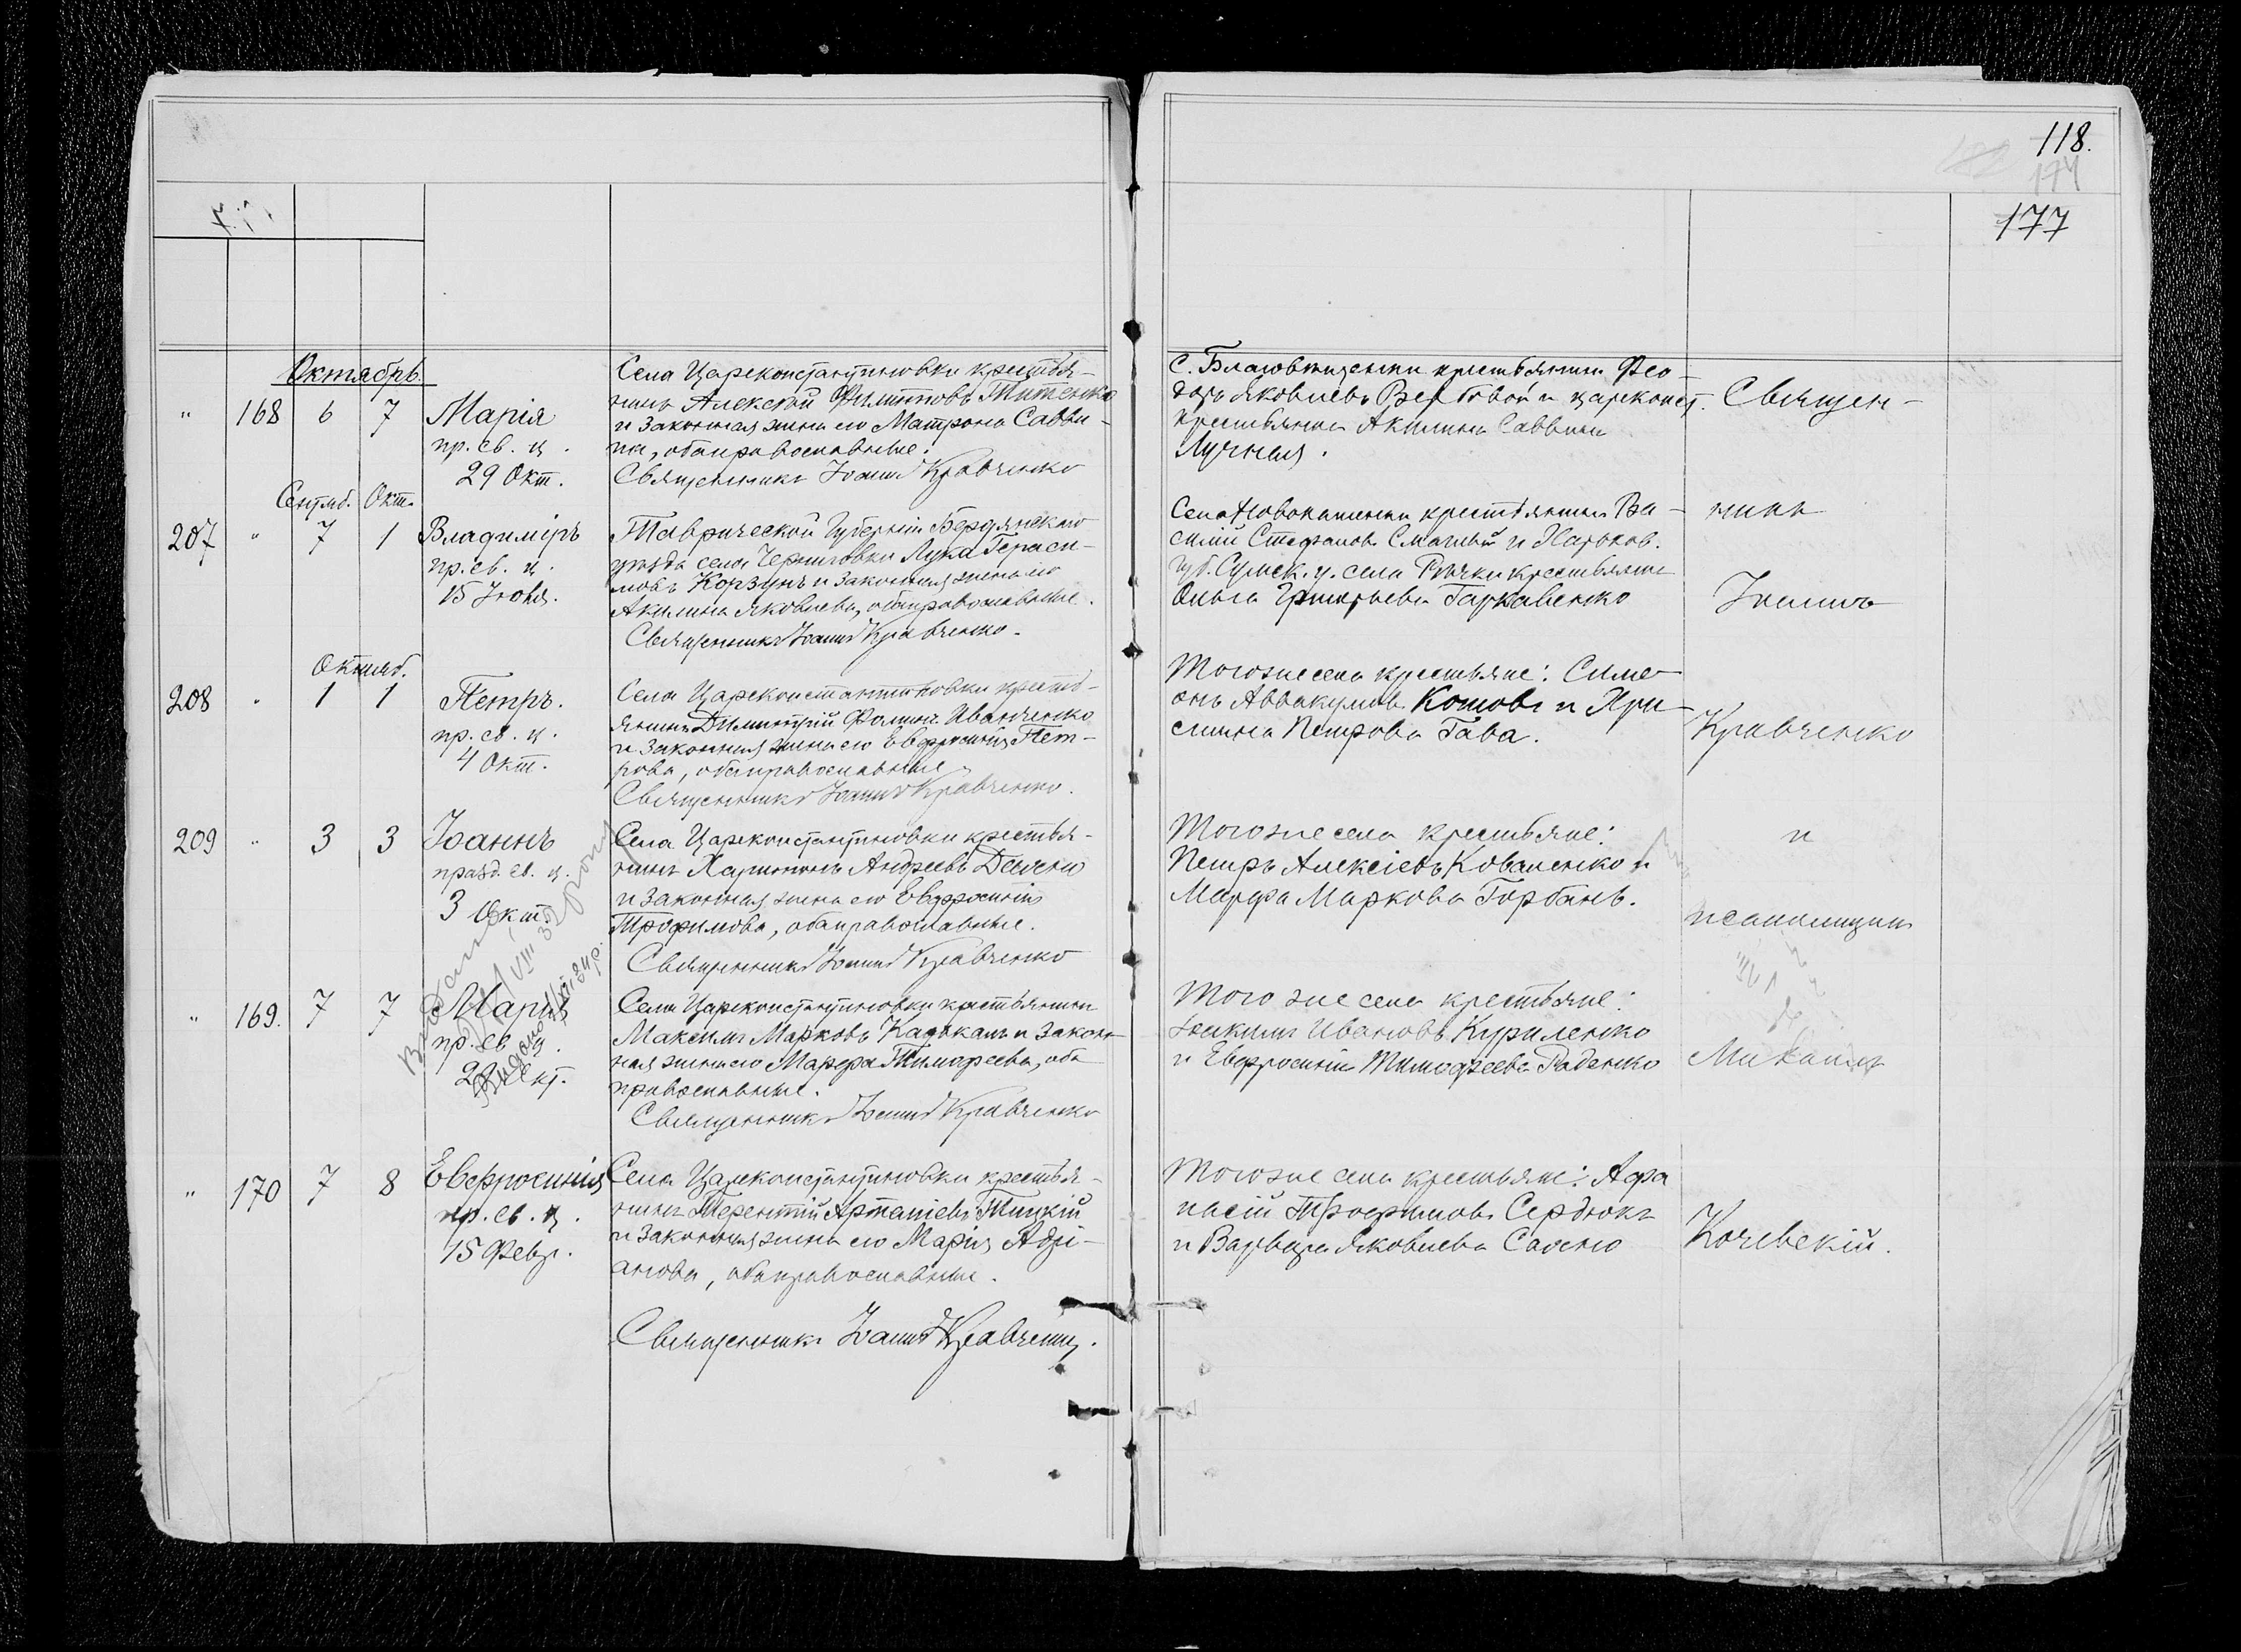 118.
174
177
Октябрь.
" 168 6 7 Марія
пр. св. ц.
29 Окт.
Села Цареконстантиновки крестья-
нинъ Алексѣй Филиповъ Титенко
и законная жена его Матрона Савви-
на, оба православные.
Священникъ Іоаннъ Кравченко
С. Благовѣщенки крестьянинъ Фео-
доръ Яковлевъ Вербовой и цареконст.
крестьянка Акилина Саввина
Лучная.
Священ-
Сентяб. Окт.
207 " 7 1 Владиміръ
пр. св. ц.
15 Іюля.
Таврической Губерніи Бердянскаго
уѣзда села Черниговки Лука Гераси-
мовъ Корзунъ и законная жена его
Акилина Яковлева, оба православные.
Священникъ Іоаннъ Кравченко.
Села Новокаменки крестьянинъ Ва-
силій Стефановъ Смаглый и Харьков.
Губ. Сумск. у. села Рѣчки крестьянка
Ольга Григорьева Гаркавенко
никъ
Іоаннъ
Октяб.
208 " 1 1 Петръ.
пр. св. ц.
4 Окт.
Села Цареконстантиновки кресть-
янинъ Димитрій Фоминъ Иванченко
и законная жена его Евфросинія Пет-
рова, оба православные
Священникъ Іоаннъ Кравченко.
Того же села крестьяне: Симе-
онъ Аввакумовъ Котовъ и Хри-
стина Петрова Гава.
Кравченко
209 " 3 3 Іоаннъ
празд. св. ц.
3 Окт.
Села Цареконстантиновки крестья-
нинъ Харитонъ Андреевъ
и законная жена его Евфросинія
Трофимова, оба православные.
Священникъ Іоаннъ Кравченко
Того же села крестьяне:
Петръ Алексіевъ Коваленко и
Марфа Маркова Горбань.
и
псаломщикъ
" 169. 7 7 Марія
пр. св. ц.
Окт.
Села Цареконстантиновки крестьянинъ
Максимъ Марковъ и закон-
ная жена его Марфа Тимофеева, оба
православные.
Священникъ Іоаннъ Кравченко
Того же села крестьяне:
Іоакимъ Ивановъ Куриленко
и Евфросинія Тимофеева Раденко
Михаилъ
" 170 7 8 Евфросинія
пр. св. ц.
15 Февр.
Села Цареконстантиновки крестья-
нинъ Терентій
и законная жена его Марія Адрі-
анова, оба православные.
Священникъ Іоаннъ Кравченко.
Того же села крестьяне: Афа
насій Трофимовъ Сердюкъ
и Варвара Яковлева
Кочевскій.